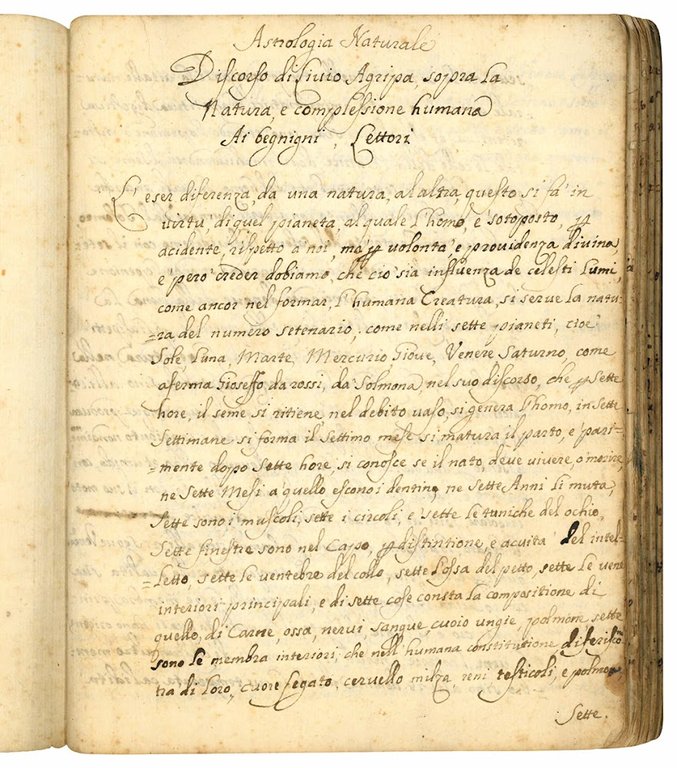 Astrologia Naturale
Discorso di Livio Agripa, sopra la
Natura, e complessione humana
Ai begnigni, Lettori
L'eser diferenza da una natura, al altra, questo si fa in
virtù, di quel pianeta, al quale l'homo, è sotoposto
acidente, rispetto a noi, ma ꝑ volontà e providenza divina,
e però creder dobiamo, che cio sia influenza de celesti Lumi,
come ancor nel formar, l'humana Creatura, si serve la natu-
=ra del numero setenario, come nelli sette pianeti, cioè
Sole, Luna, Marte, Mercurio Giove, Venere Saturno, come
aferma Gioseffo da rossi, da Solmona, nel suo discorso, che ꝑ sette
hore, il seme si ritiene nel debito vaso, si genera l'homo, in sette
Settimane si forma il settimo mese si matura il parto, e pari-
=mente dopo sette hore, si conosce se il nato, deve vivere, o morire
ne sette Mesi a quello escono i dentini, ne sette Anni si muta,
sette sono i muscoli, sette i circoli, e sette le tuniche del ochio,
Sette finestre sono nel Capo, ꝑ distintione, e acuità del intel-
=letto, sette le ventebre del collo, sette l'ossa del petto, sette le vene
interiori principali, e di sette cose consta la compositione di
quello, di Carne, ossa, nervi sangue, cuoio ungie, polmone sette
sono le membra interiori, che nell'humana constitutione diferiscō
tra di loro, cuore fegato, cervello milza reni testicoli, e polmon
Sette.